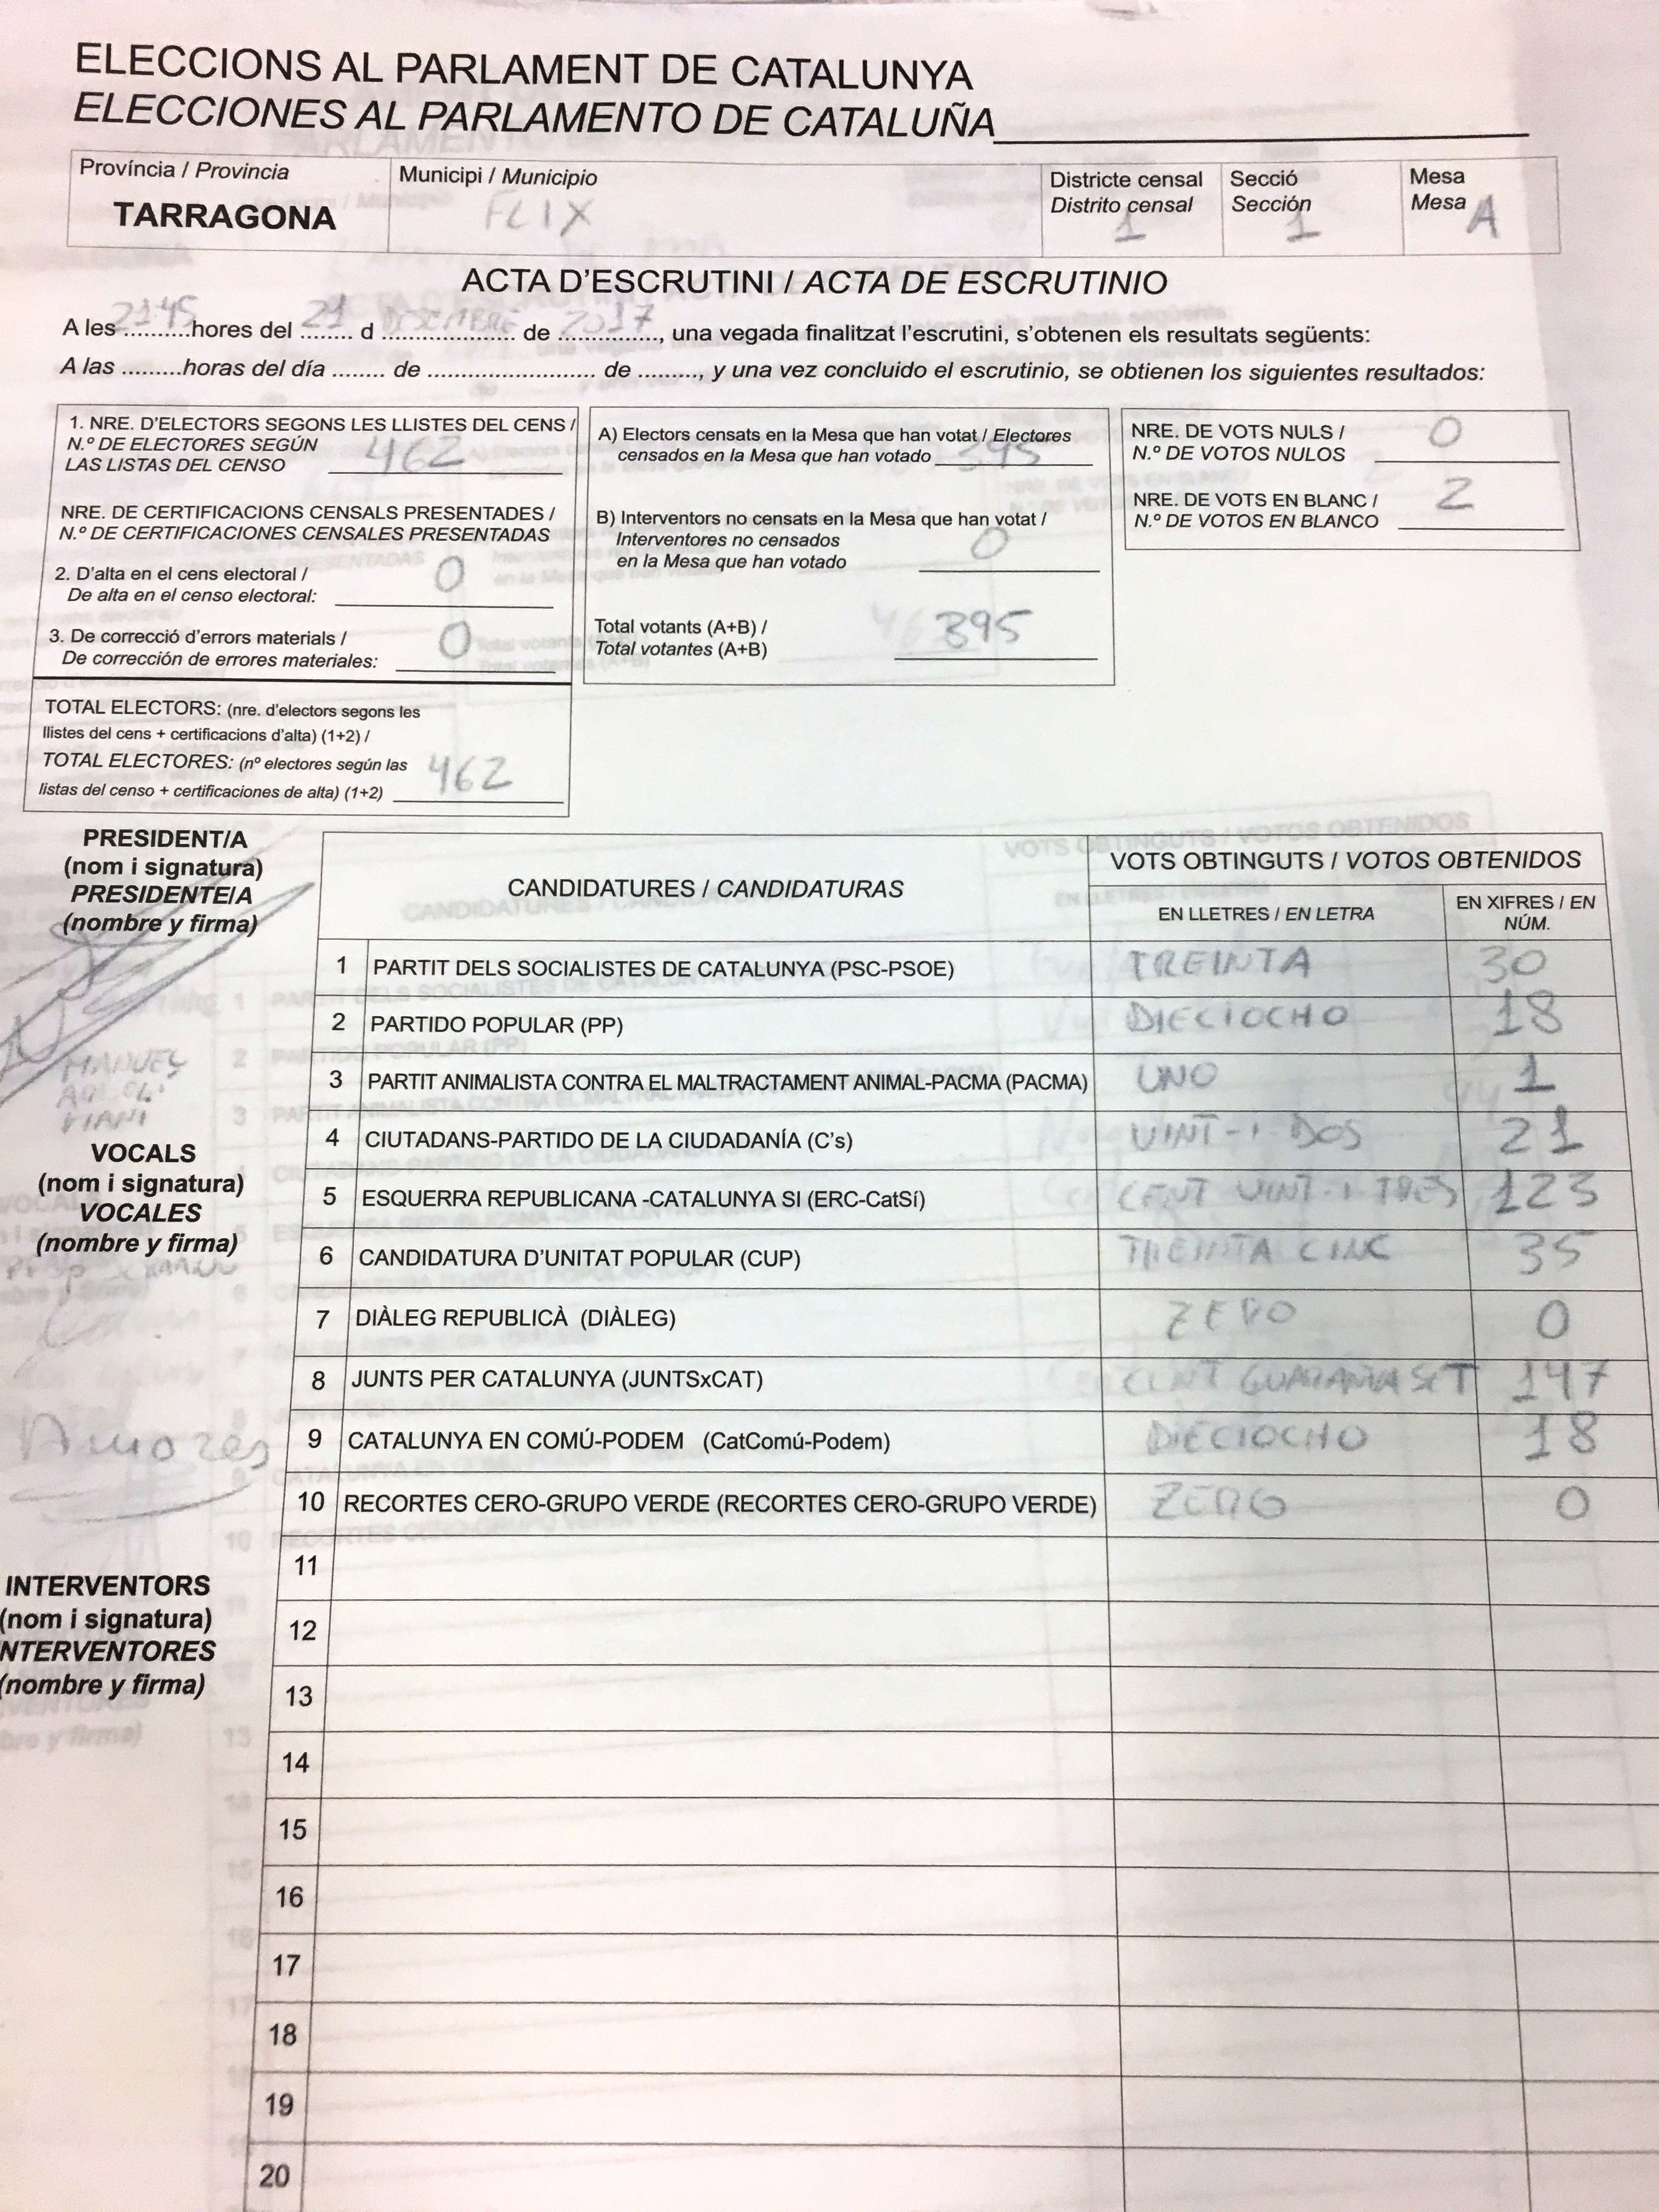 ELECCIONS AL PARLAMENT DE CATALUNYA
ELECCIONES AL PARLAMENTO DE CATALUÑA
Província / Provincia
TARRAGONA
Municipi / Municipio
FLIX
Districte censal
Distrito censal
1
Secció
Sección
1
Mesa
Mesa A
ACTA D'ESCRUTINI / ACTA DE ESCRUTINIO
A les 21:45 hores del 21 d DISCEMBRE de 2017, una vegada finalitzat l'escrutini, s'obtenen els resultats següents:
A las .........horas del día ........ de ......................... de ........., y una vez concluido el escrutinio, se obtienen los siguientes resultados:
1. NRE. D'ELECTORS SEGONS LES LLISTES DEL CENS /
N.º DE ELECTORES SEGÚN
LAS LISTAS DEL CENSO 462
NRE. DE CERTIFICACIONS CENSALS PRESENTADES /
N.º DE CERTIFICACIONES CENSALES PRESENTADAS
2. D'alta en el cens electoral /
De alta en el censo electoral: 0
3. De correcció d'errors materials /
De corrección de errores materiales: 0
TOTAL ELECTORS: (nre. d'electors segons les
llistes del cens + certificacions d'alta) (1+2) /
TOTAL ELECTORES: (nº electores según las
listas del censo + certificaciones de alta) (1+2) 462
A) Electors censats en la Mesa que han votat / Electores
censados en la Mesa que han votado 395
B) Interventors no censats en la Mesa que han votat /
Interventores no censados
en la Mesa que han votado 0
Total votants (A+B) /
Total votantes (A+B) 395
NRE. DE VOTS NULS /
N.º DE VOTOS NULOS 0
NRE. DE VOTS EN BLANC /
N.º DE VOTOS EN BLANCO 2
PRESIDENT/A
(nom i signatura)
PRESIDENTE/A
(nombre y firma)
MANUEL
VOCALS
(nom i signatura)
VOCALES
(nombre y firma)
Amores
INTERVENTORS
(nom i signatura)
NTERVENTORES
(nombre y firma)
CANDIDATURES / CANDIDATURAS
VOTS OBTINGUTS / VOTOS OBTENIDOS
EN LLETRES / EN LETRA
EN XIFRES / EN
NÚM.
1 PARTIT DELS SOCIALISTES DE CATALUNYA (PSC-PSOE) TREINTA 30
2 PARTIDO POPULAR (PP) DIECIOCHO 18
3 PARTIT ANIMALISTA CONTRA EL MALTRACTAMENT ANIMAL-PACMA (PACMA) UNO 1
4 CIUTADANS-PARTIDO DE LA CIUDADANÍA (C's) VINT-I-DOS 21
5 ESQUERRA REPUBLICANA -CATALUNYA SI (ERC-CatSí) CENT VINT-I-TRES 123
6 CANDIDATURA D'UNITAT POPULAR (CUP) TREINTA CINC 35
7 DIÀLEG REPUBLICÀ (DIÀLEG) ZERO 0
8 JUNTS PER CATALUNYA (JUNTSxCAT) CENT QUARANTA SET 147
9 CATALUNYA EN COMÚ-PODEM (CatComú-Podem) DIECIOCHO 18
10 RECORTES CERO-GRUPO VERDE (RECORTES CERO-GRUPO VERDE) ZERO 0
11
12
13
14
15
16
17
18
19
20